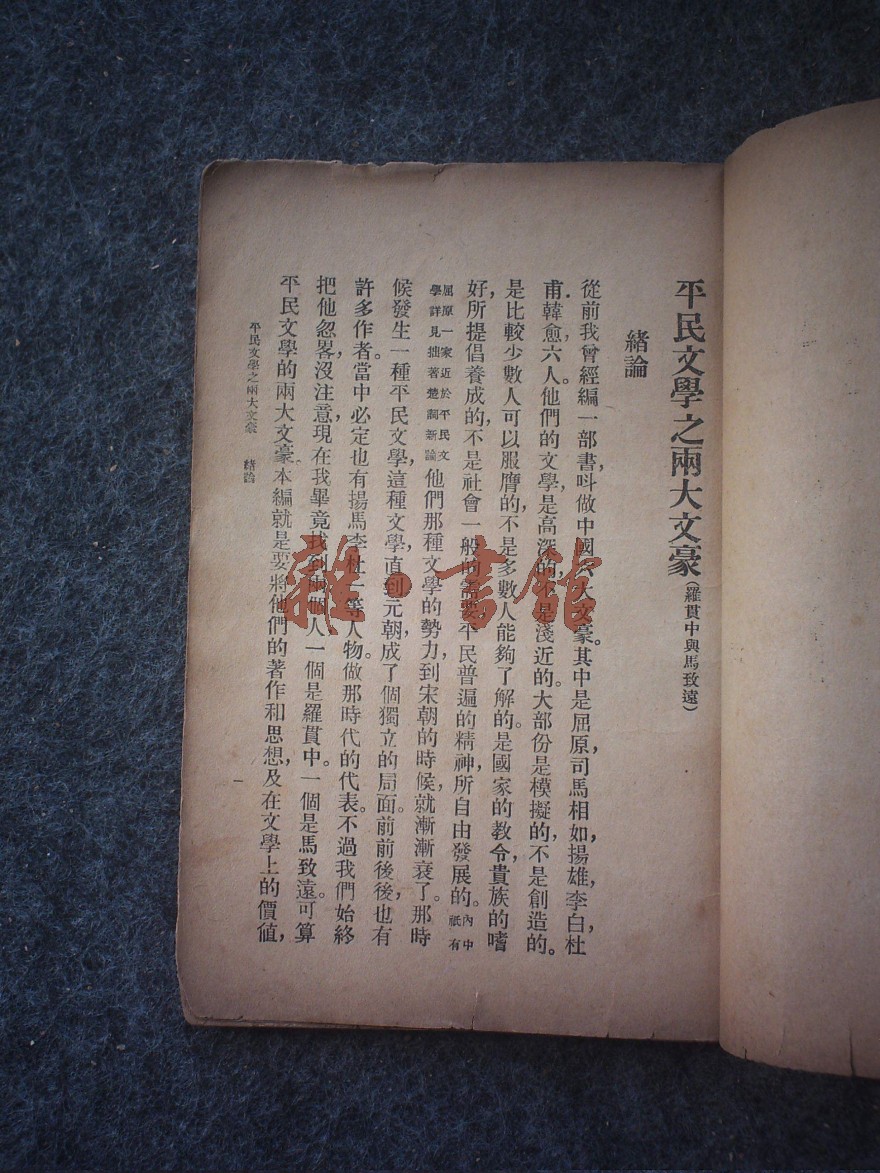 平民文學之兩大文豪(羅貫中與馬致遠)
緒論
從前我曾經編一部書,呌做中國六大文豪。其中是屈原,司馬相如,揚雄,李白,杜
甫,韓愈六人。他們的文學,是高深的,不是淺近的。大部份是模擬的,不是創造的。
是比較少數人可以服膺的,不是多數人能夠了解的。是國家的敎令,貴族的嗜
好,所提倡養成的,不是社會一般的需要,平民普遍的精神,所自由發展的。內中祇有
屈原一家近於平民文學詳見拙著楚詞新論他們那種文學的勢力,到宋朝的時候,就漸漸衰了。那時
候發生一種平民文學,這種文學,直到元朝,成了個獨立的局面。前前後後,也有
許多作者。當中必定也有揚馬李杜一等人物。做那時代的代表。不過我們始終
把他忽畧,沒注意,現在我畢竟找到兩個人一個是羅貫中。一個是馬致遠。可算
平民文學的兩大文豪。本編就是要將他們的著作和思想,及在文學上的價値,
平民文學之兩大文豪 緒論
一
雜·書館